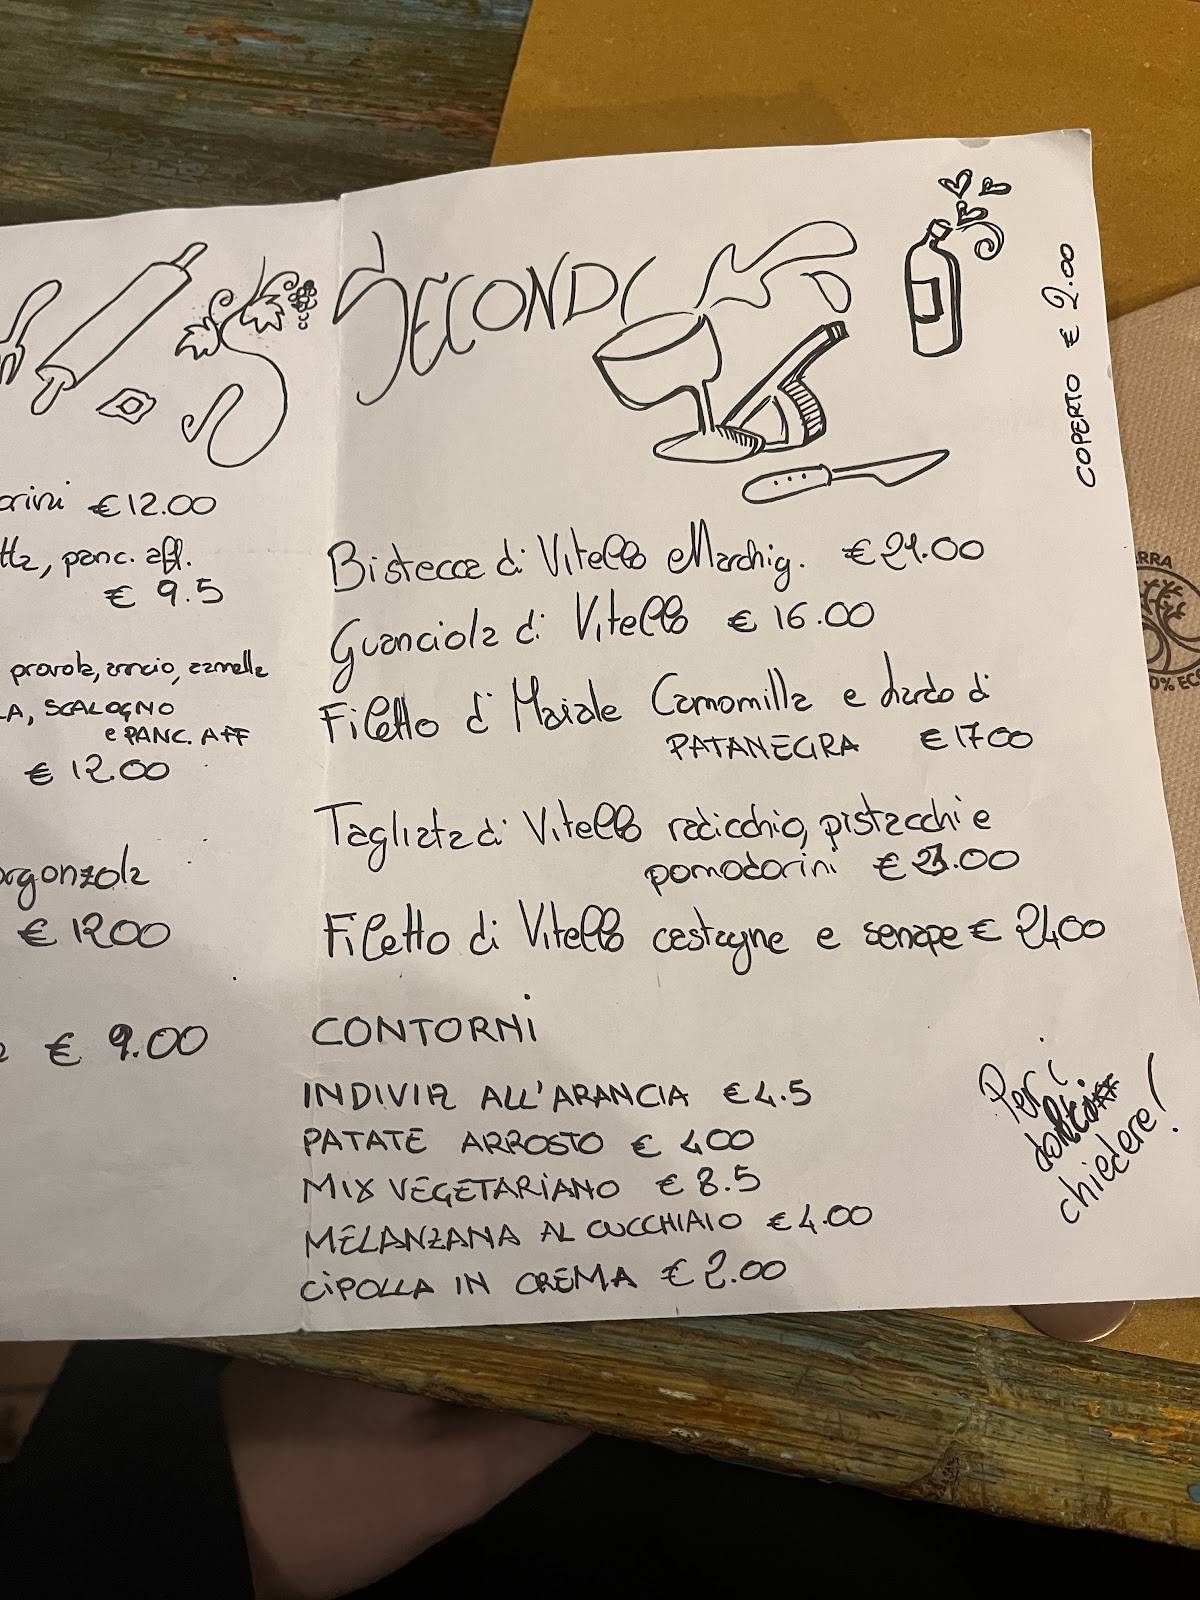 € 12.00
panc. aff.
€ 9.5
provola, arancio, cannella
SCALOGNO
e PANC. AFF
€ 12.00
€ 1200
€ 9.00
SECONDI
COPERTO € 2.00
Bistecca di Vitello Marchig. € 21.00
Guanciola di Vitello € 16.00
Filetto di Maiale Camomilla e lardo di
PATANEGRA € 1700
Tagliata di Vitello radicchio, pistacchi e
pomodorini € 21.00
Filetto di Vitello castagne e senape € 2400
CONTORNI
INDIVIA ALL'ARANCIA € 4.5
PATATE ARROSTO € 400
MIX VEGETARIANO € 8.5
MELANZANA AL CUCCHIAIO € 4.00
CIPOLLA IN CREMA € 2.00
Per i
dolci
chiedere!